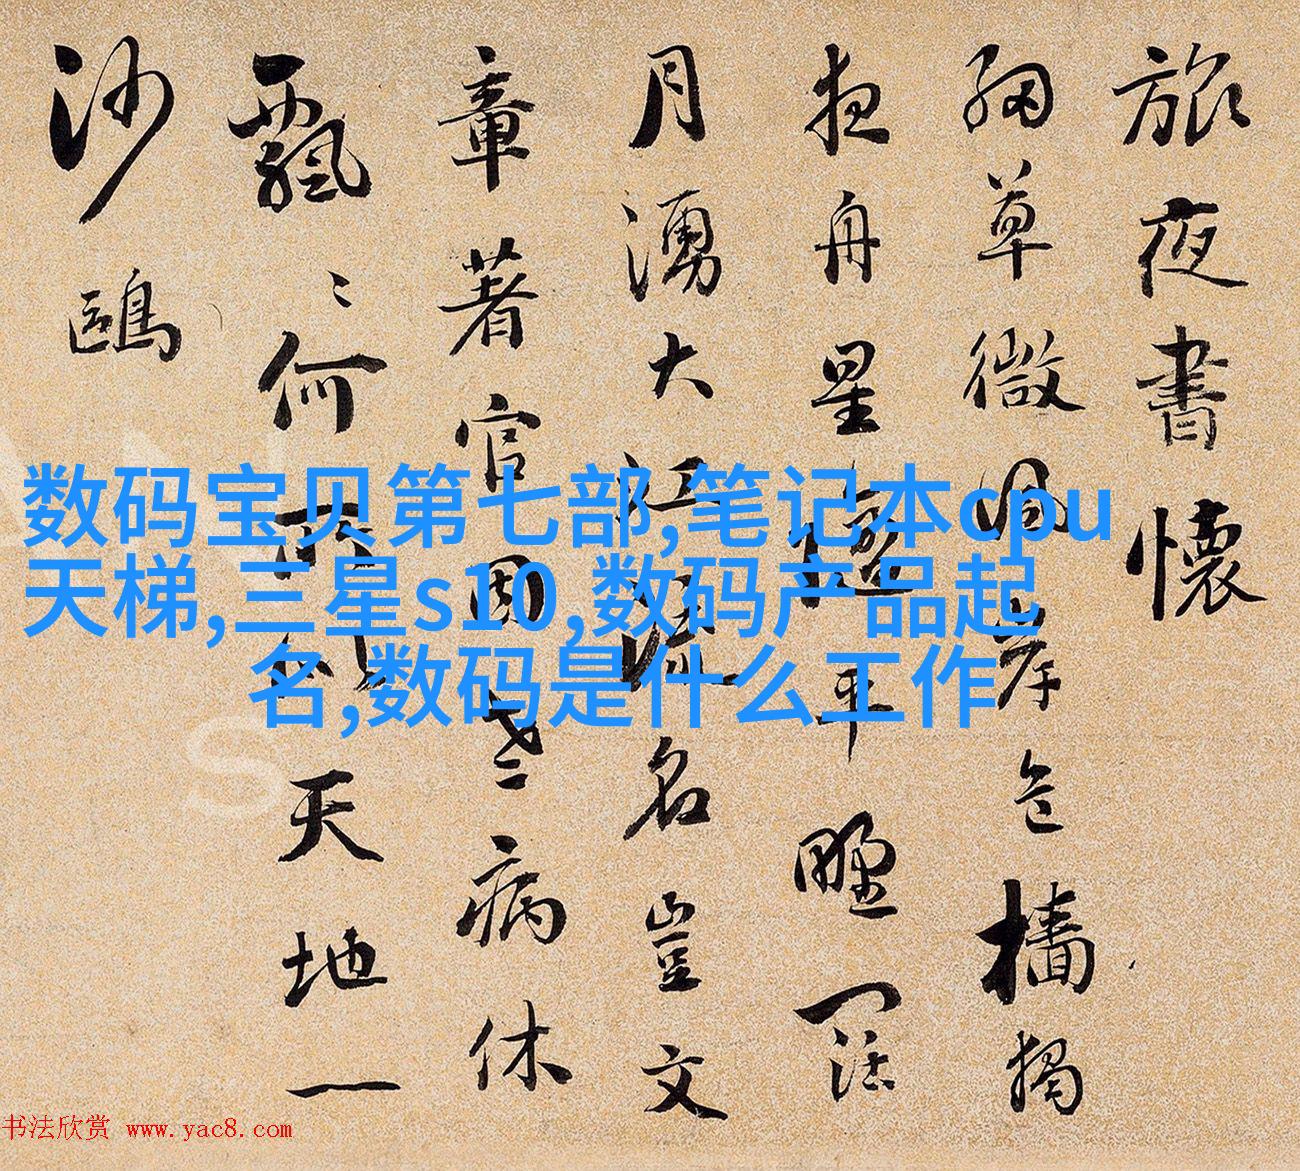 旅夜書懷
細草微風岸危檣獨
夜舟星平野闊
月湧大江流名豈文
章著官因老病休
飄〻何所似天地一
沙鷗
数码宝贝第七部,笔记本cpu
天梯,三星s10,数码产品起
名,数码是什么工作
书法欣赏 www.yac8.com